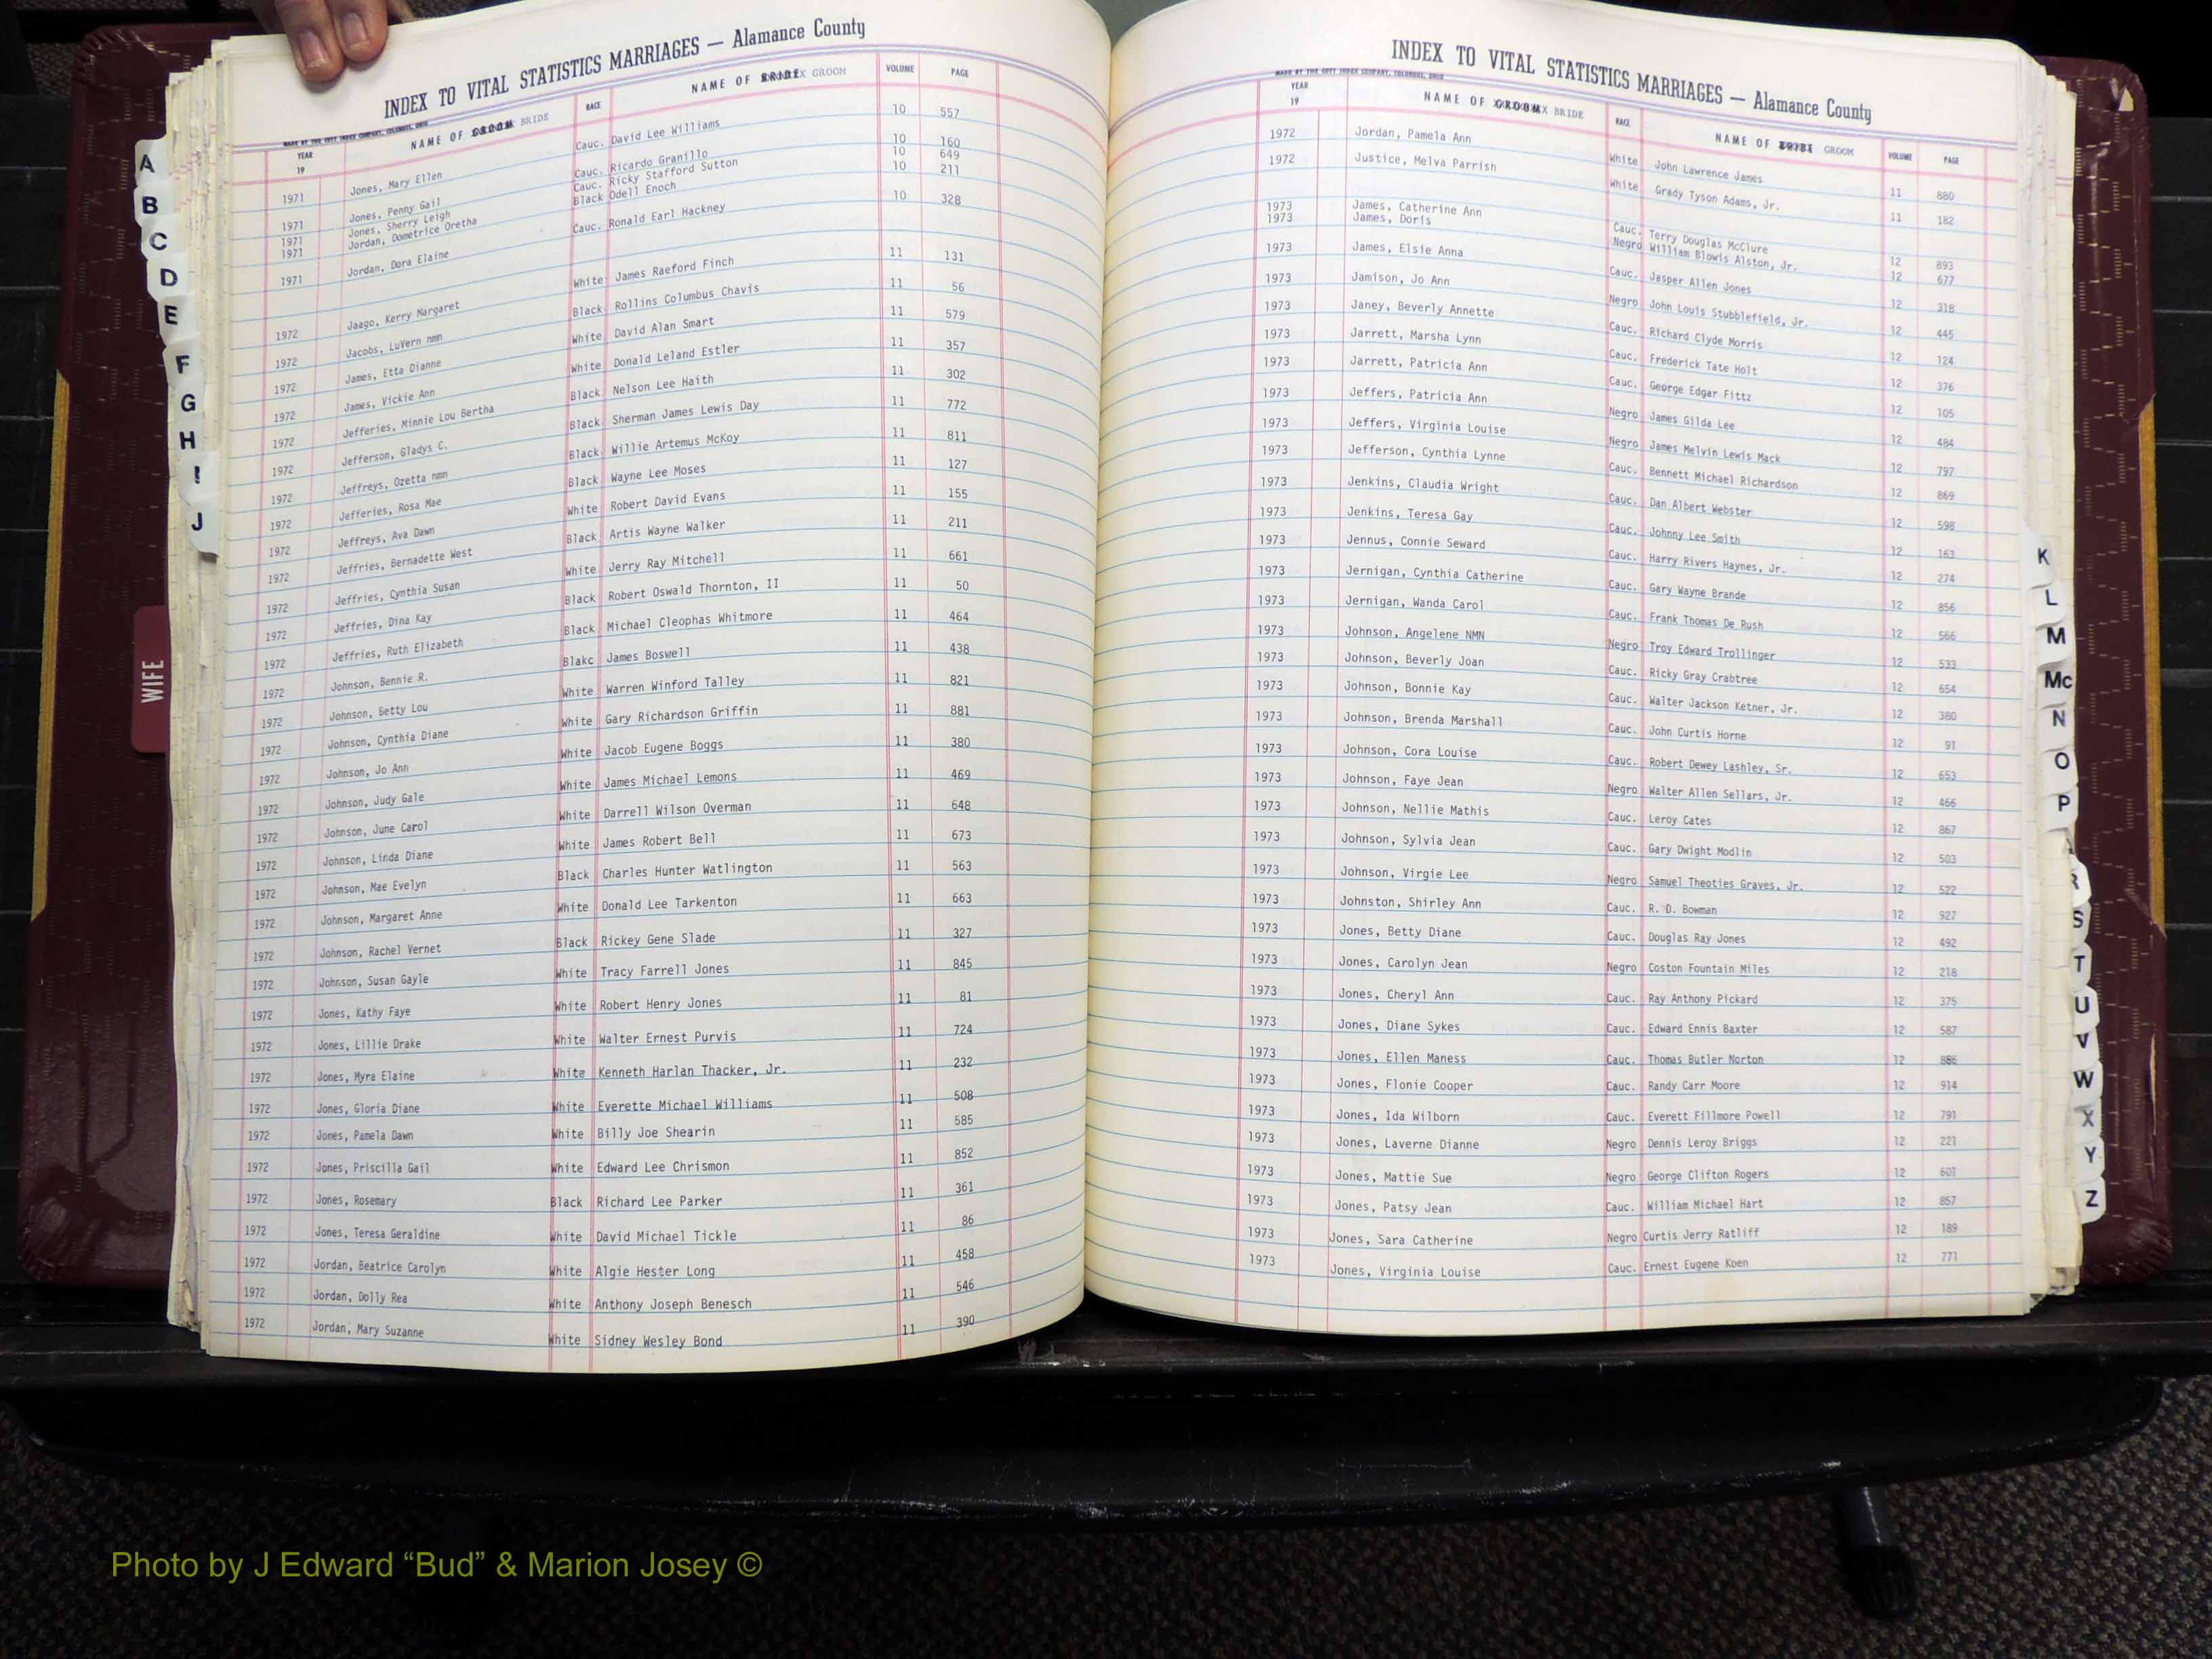 INDEX TO VITAL STATISTICS MARRIAGES — Alamance County
MADE BY THE COTT INDEX COMPANY, COLUMBUS, OHIO
YEAR 19 NAME OF GROOM BRIDE RACE NAME OF BRIDE GROOM VOLUME PAGE
1971 Jones, Mary Ellen Cauc. David Lee Williams 10 557
1971 Jones, Penny Gail Cauc. Ricardo Granillo 10 160
1971 Jones, Sherry Leigh Cauc. Ricky Stafford Sutton 10 649
1971 Jordan, Dometrice Oretha Black Odell Enoch 10 211
1971 Jordan, Dora Elaine Cauc. Ronald Earl Hackney 10 328
1972 Jaago, Kerry Margaret White James Raeford Finch 11 131
1972 Jacobs, LuVern nmn Black Rollins Columbus Chavis 11 56
1972 James, Etta Dianne White David Alan Smart 11 579
1972 James, Vickie Ann White Donald Leland Estler 11 357
1972 Jefferies, Minnie Lou Bertha Black Nelson Lee Haith 11 302
1972 Jefferson, Gladys C. Black Sherman James Lewis Day 11 772
1972 Jeffreys, Ozetta nmn Black Willie Artemus McKoy 11 811
1972 Jefferies, Rosa Mae Black Wayne Lee Moses 11 127
1972 Jeffreys, Ava Dawn White Robert David Evans 11 155
1972 Jeffries, Bernadette West Black Artis Wayne Walker 11 211
1972 Jeffries, Cynthia Susan White Jerry Ray Mitchell 11 661
1972 Jeffries, Dina Kay Black Robert Oswald Thornton, II 11 50
1972 Jeffries, Ruth Elizabeth Black Michael Cleophas Whitmore 11 464
1972 Johnson, Bennie R. Blakc James Boswell 11 438
1972 Johnson, Betty Lou White Warren Winford Talley 11 821
1972 Johnson, Cynthia Diane White Gary Richardson Griffin 11 881
1972 Johnson, Jo Ann White Jacob Eugene Boggs 11 380
1972 Johnson, Judy Gale White James Michael Lemons 11 469
1972 Johnson, June Carol White Darrell Wilson Overman 11 648
1972 Johnson, Linda Diane White James Robert Bell 11 673
1972 Johnson, Mae Evelyn Black Charles Hunter Watlington 11 563
1972 Johnson, Margaret Anne White Donald Lee Tarkenton 11 663
1972 Johnson, Rachel Vernet Black Rickey Gene Slade 11 327
1972 Johnson, Susan Gayle White Tracy Farrell Jones 11 845
1972 Jones, Kathy Faye White Robert Henry Jones 11 81
1972 Jones, Lillie Drake White Walter Ernest Purvis 11 724
1972 Jones, Myra Elaine White Kenneth Harlan Thacker, Jr. 11 232
1972 Jones, Gloria Diane White Everette Michael Williams 11 508
1972 Jones, Pamela Dawn White Billy Joe Shearin 11 585
1972 Jones, Priscilla Gail White Edward Lee Chrismon 11 852
1972 Jones, Rosemary Black Richard Lee Parker 11 361
1972 Jones, Teresa Geraldine White David Michael Tickle 11 86
1972 Jordan, Beatrice Carolyn White Algie Hester Long 11 458
1972 Jordan, Dolly Rea White Anthony Joseph Benesch 11 546
1972 Jordan, Mary Suzanne White Sidney Wesley Bond 11 390
INDEX TO VITAL STATISTICS MARRIAGES — Alamance County
MADE BY THE COTT INDEX COMPANY, COLUMBUS, OHIO
YEAR 19 NAME OF GROOM BRIDE RACE NAME OF BRIDE GROOM VOLUME PAGE
1972 Jordan, Pamela Ann White John Lawrence James 11 880
1972 Justice, Melva Parrish White Grady Tyson Adams, Jr. 11 182
1973 James, Catherine Ann Cauc. Terry Douglas McClure 12 893
1973 James, Doris Negro William Blowis Alston, Jr. 12 677
1973 James, Elsie Anna Cauc. Jasper Allen Jones 12 318
1973 Jamison, Jo Ann Negro John Louis Stubblefield, Jr. 12 445
1973 Janey, Beverly Annette Cauc. Richard Clyde Morris 12 124
1973 Jarrett, Marsha Lynn Cauc. Frederick Tate Holt 12 376
1973 Jarrett, Patricia Ann Cauc. George Edgar Fittz 12 105
1973 Jeffers, Patricia Ann Negro James Gilda Lee 12 484
1973 Jeffers, Virginia Louise Negro James Melvin Lewis Mack 12 797
1973 Jefferson, Cynthia Lynne Cauc. Bennett Michael Richardson 12 869
1973 Jenkins, Claudia Wright Cauc. Dan Albert Webster 12 598
1973 Jenkins, Teresa Gay Cauc. Johnny Lee Smith 12 163
1973 Jennus, Connie Seward Cauc. Harry Rivers Haynes, Jr. 12 274
1973 Jernigan, Cynthia Catherine Cauc. Gary Wayne Brande 12 856
1973 Jernigan, Wanda Carol Cauc. Frank Thomas De Rush 12 566
1973 Johnson, Angelene NMN Negro Troy Edward Trollinger 12 533
1973 Johnson, Beverly Joan Cauc. Ricky Gray Crabtree 12 654
1973 Johnson, Bonnie Kay Cauc. Walter Jackson Ketner, Jr. 12 380
1973 Johnson, Brenda Marshall Cauc. John Curtis Horne 12 91
1973 Johnson, Cora Louise Cauc. Robert Dewey Lashley, Sr. 12 653
1973 Johnson, Faye Jean Negro Walter Allen Sellars, Jr. 12 466
1973 Johnson, Nellie Mathis Cauc. Leroy Cates 12 867
1973 Johnson, Sylvia Jean Cauc. Gary Dwight Modlin 12 503
1973 Johnson, Virgie Lee Negro Samuel Theoties Graves, Jr. 12 522
1973 Johnston, Shirley Ann Cauc. R. D. Bowman 12 927
1973 Jones, Betty Diane Cauc. Douglas Ray Jones 12 492
1973 Jones, Carolyn Jean Negro Coston Fountain Miles 12 218
1973 Jones, Cheryl Ann Cauc. Ray Anthony Pickard 12 375
1973 Jones, Diane Sykes Cauc. Edward Ennis Baxter 12 587
1973 Jones, Ellen Maness Cauc. Thomas Butler Norton 12 886
1973 Jones, Flonie Cooper Cauc. Randy Carr Moore 12 914
1973 Jones, Ida Wilborn Cauc. Everett Fillmore Powell 12 791
1973 Jones, Laverne Dianne Negro Dennis Leroy Briggs 12 221
1973 Jones, Mattie Sue Negro George Clifton Rogers 12 601
1973 Jones, Patsy Jean Cauc. William Michael Hart 12 857
1973 Jones, Sara Catherine Negro Curtis Jerry Ratliff 12 189
1973 Jones, Virginia Louise Cauc. Ernest Eugene Koen 12 771
A
B
C
D
E
F
G
H
I
J
WIFE
K
L
M
Mc
N
O
P
R
S
T
U
V
W
X
Y
Z
Photo by J Edward “Bud” & Marion Josey ©